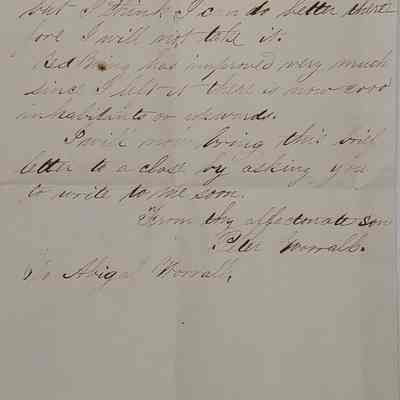 but I think I can do better there
fore I will not take it.
Red Wing has improved very much
since I left it there is now 3000
inhabitants or upwards.
I will now bring this brief
letter to a close by asking you
to write to me soon.
From thy affectonate son
Peter Worrall.
To Abigal Worrall,